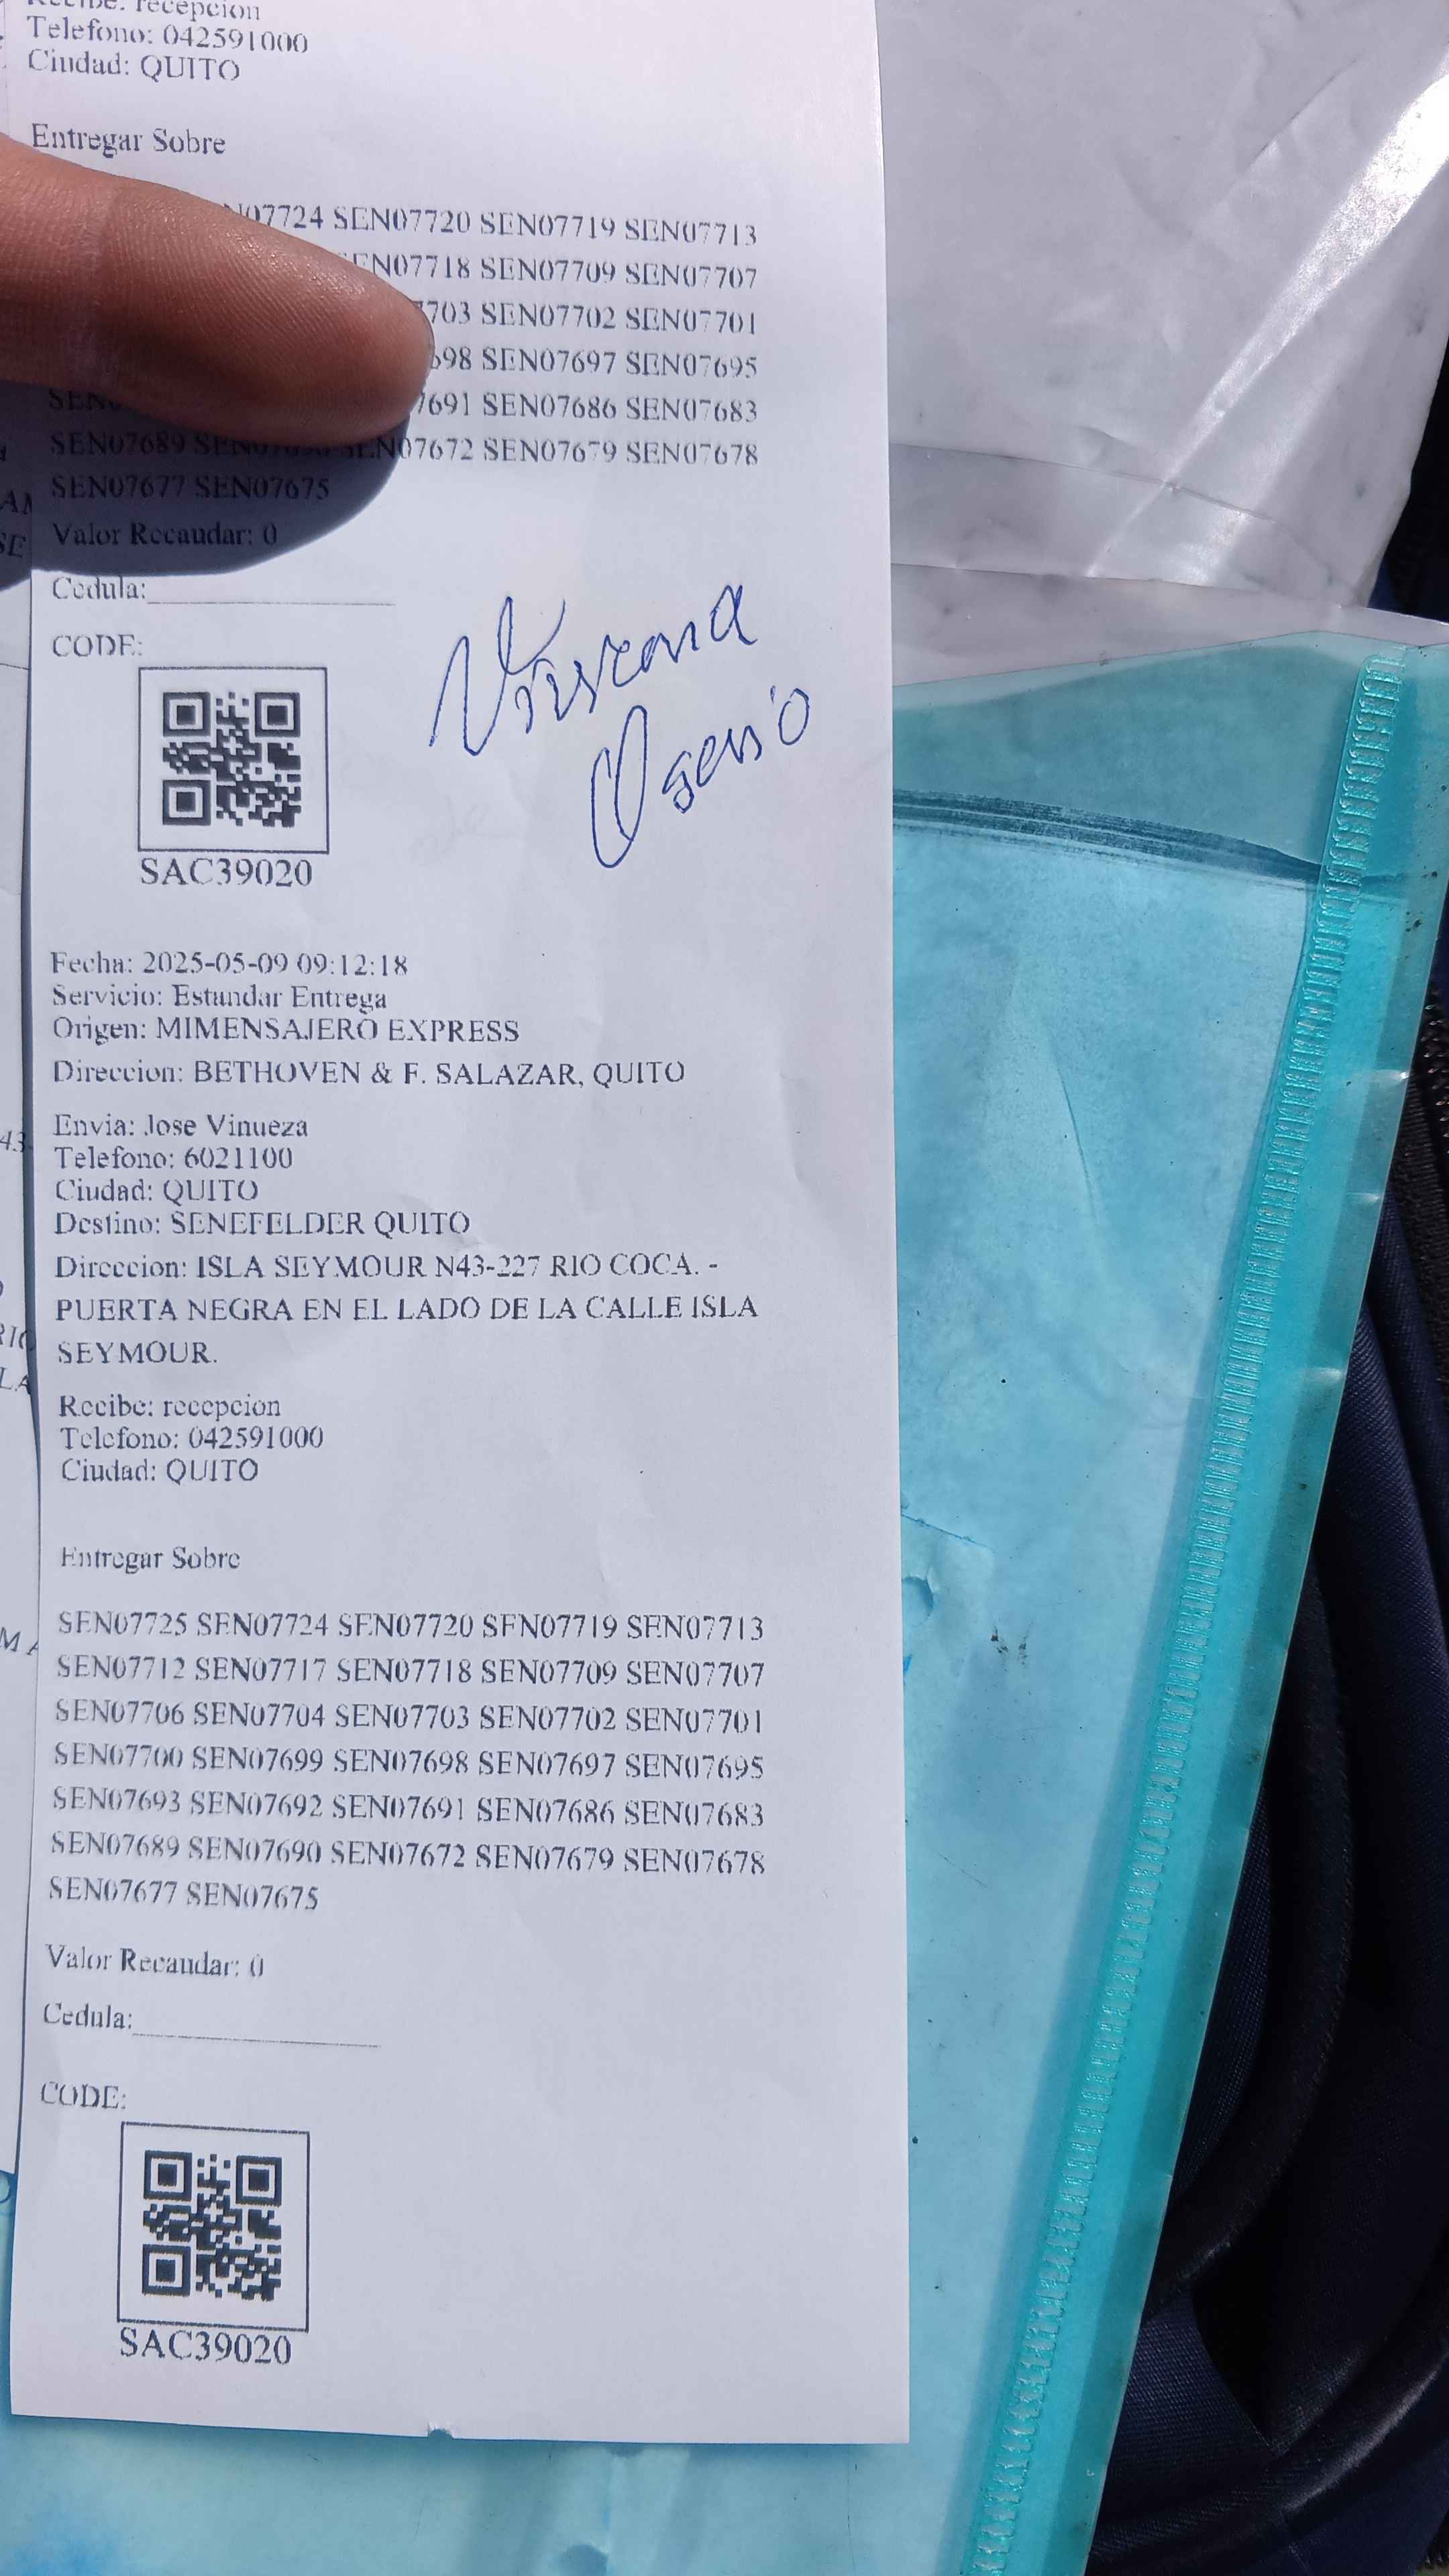 Recibe: recepcion
Telefono: 042591000
Ciudad: QUITO
Entregar Sobre
N07724 SEN07720 SEN07719 SEN07713
SEN07718 SEN07709 SEN07707
7703 SEN07702 SEN07701
698 SEN07697 SEN07695
7691 SEN07686 SEN07683
SEN07689 SEN07690 SEN07672 SEN07679 SEN07678
SEN07677 SEN07675
Valor Recaudar: 0
Cedula:
CODE:
Osorio
SAC39020
Fecha: 2025-05-09 09:12:18
Servicio: Estandar Entrega
Origen: MIMENSAJERO EXPRESS
Direccion: BETHOVEN & F. SALAZAR, QUITO
Envia: Jose Vinueza
Telefono: 6021100
Ciudad: QUITO
Destino: SENEFELDER QUITO
Direccion: ISLA SEYMOUR N43-227 RIO COCA. -
PUERTA NEGRA EN EL LADO DE LA CALLE ISLA
SEYMOUR.
Recibe: recepcion
Telefono: 042591000
Ciudad: QUITO
Entregar Sobre
SEN07725 SEN07724 SEN07720 SEN07719 SEN07713
SEN07712 SEN07717 SEN07718 SEN07709 SEN07707
SEN07706 SEN07704 SEN07703 SEN07702 SEN07701
SEN07700 SEN07699 SEN07698 SEN07697 SEN07695
SEN07693 SEN07692 SEN07691 SEN07686 SEN07683
SEN07689 SEN07690 SEN07672 SEN07679 SEN07678
SEN07677 SEN07675
Valor Recaudar: 0
Cedula:
CODE:
SAC39020